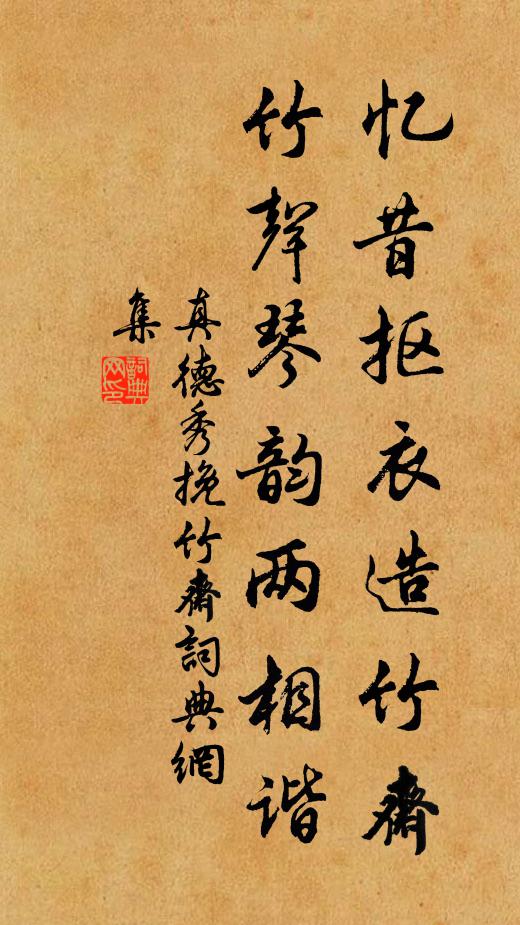 忆昔抠衣造竹斋
竹聲琴韵两相谐
真德秀挽竹齋詞典網
集
詞典
网印